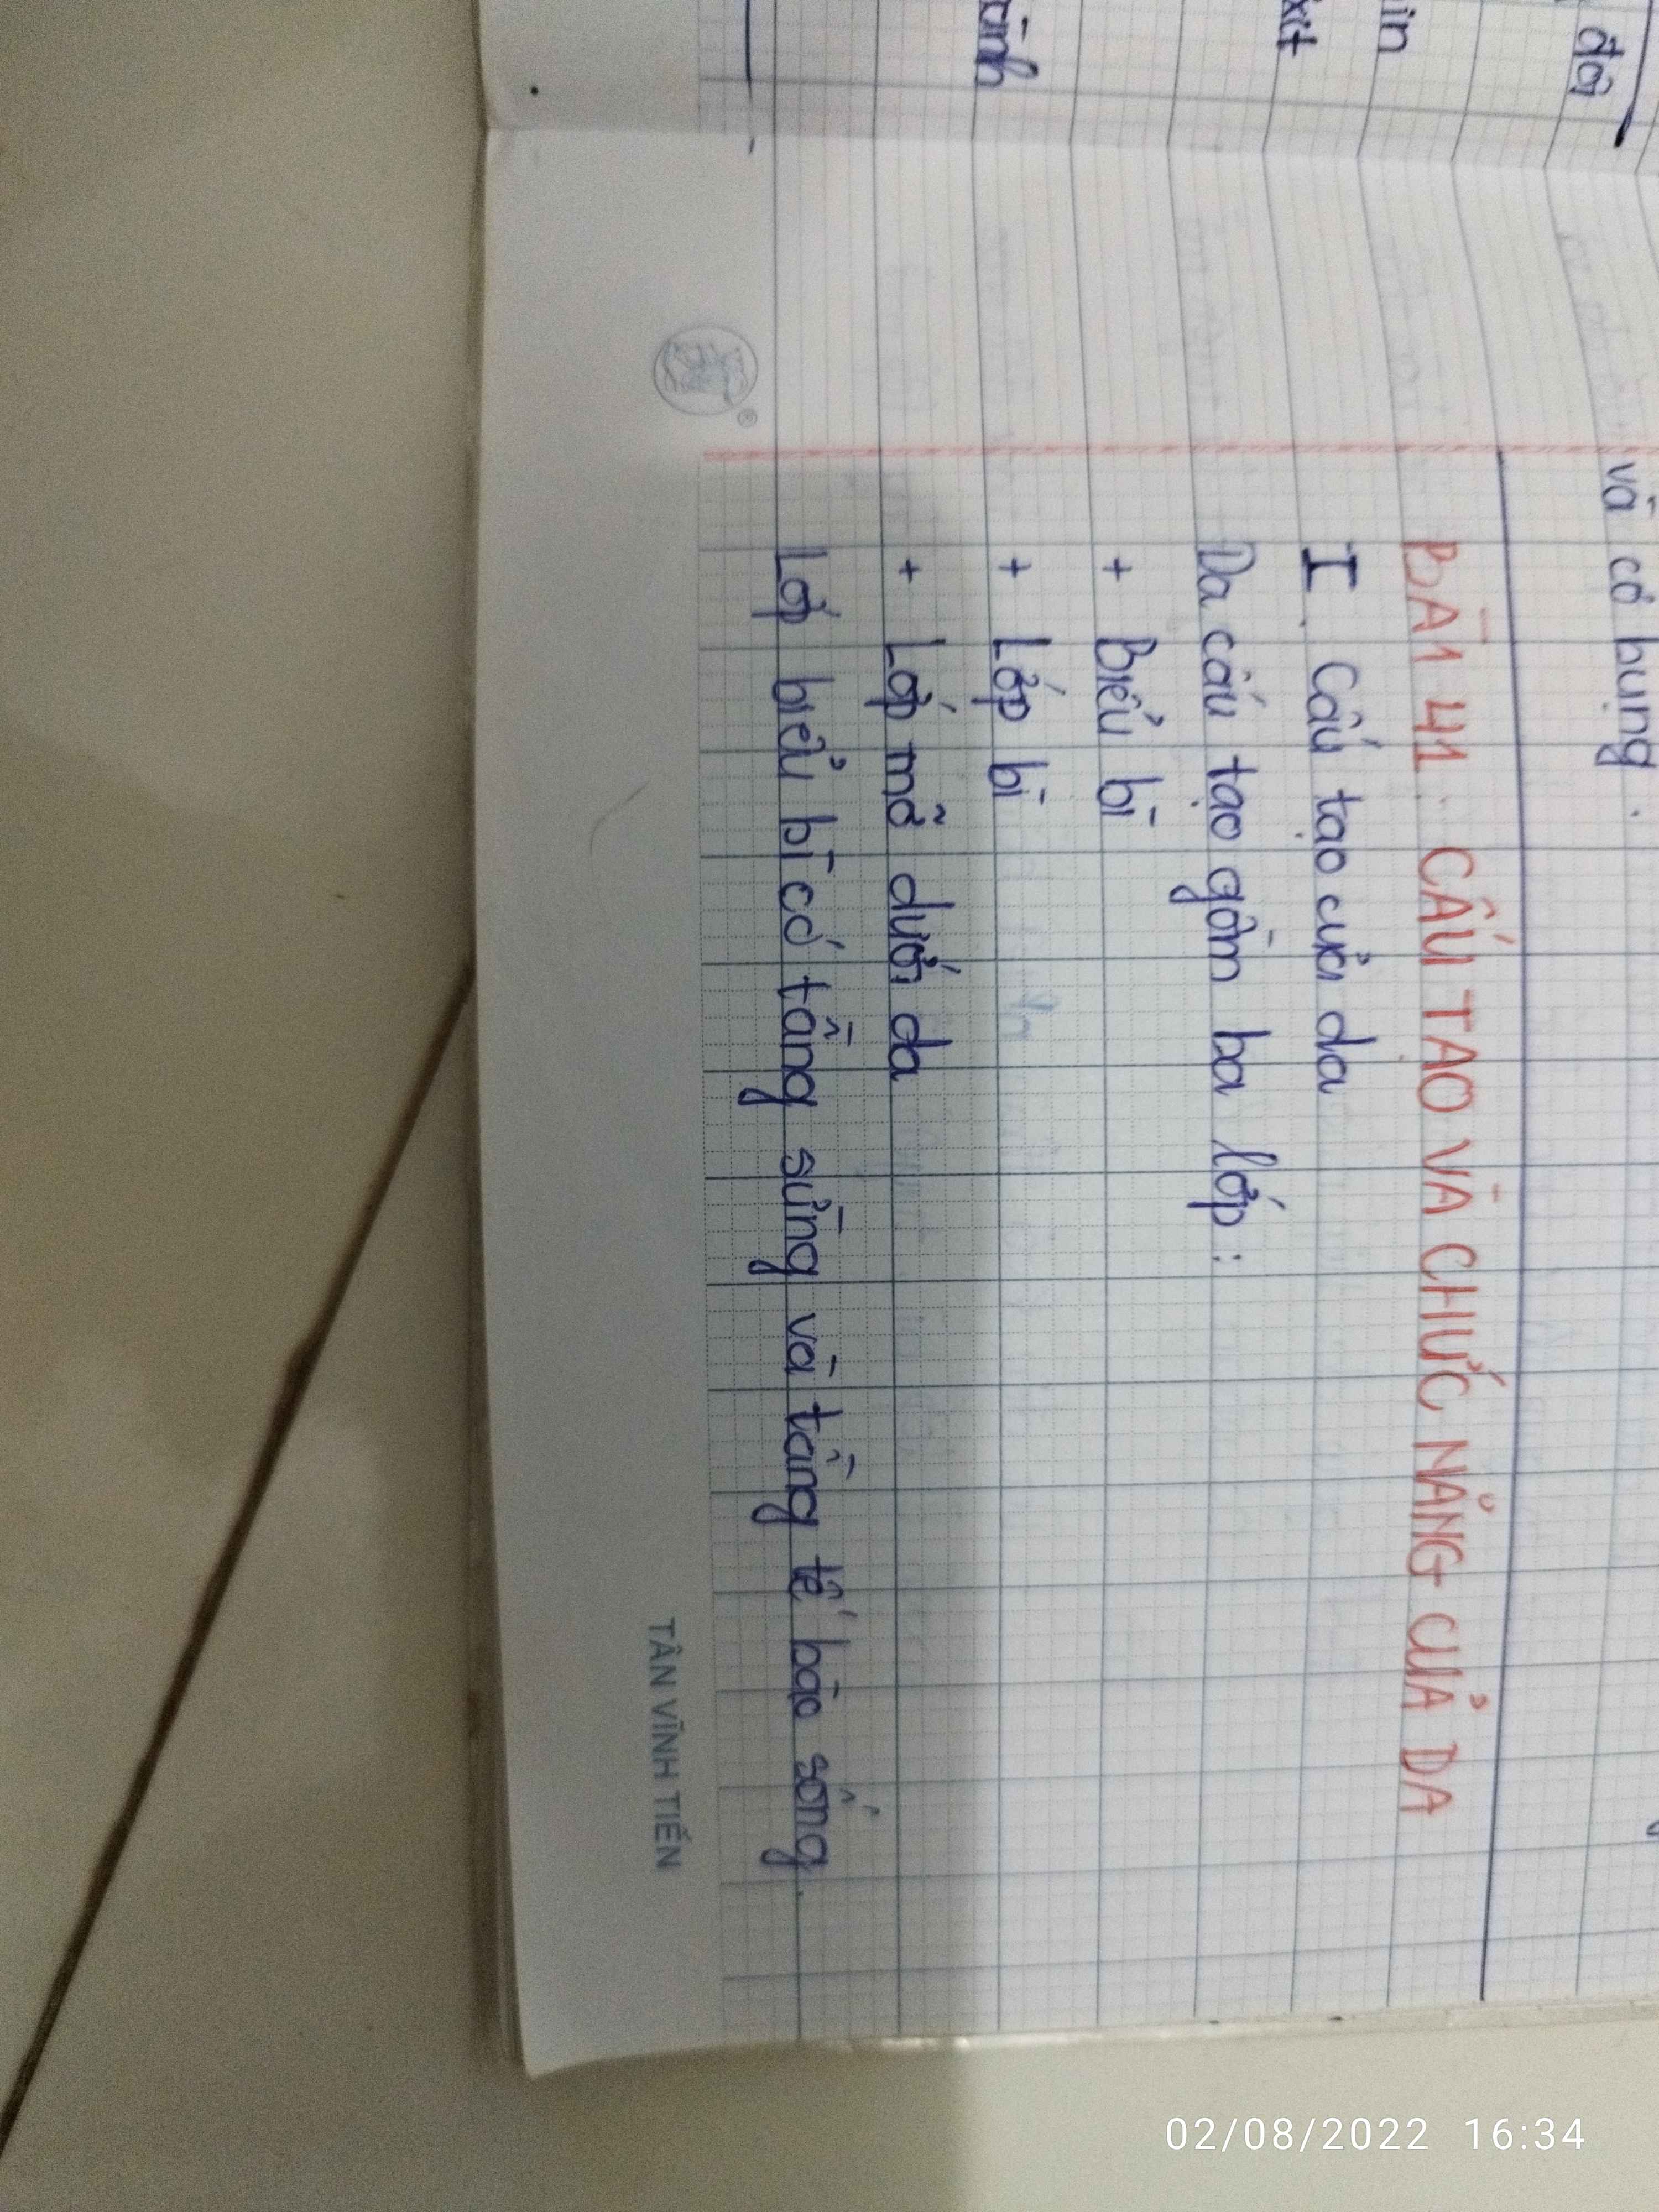 đôi
in
xit
ành
và cơ bụng.
BÀI 41: CẤU TẠO VÀ CHỨC NĂNG CỦA DA
I. Cấu tạo của da
Da cấu tạo gồm ba lớp:
+ Biểu bì
+ Lớp bì
+ Lớp mỡ dưới da
Lớp biểu bì có tầng sừng và tầng tế bào sống.
TÂN VĨNH TIẾN
02/08/2022 16:34